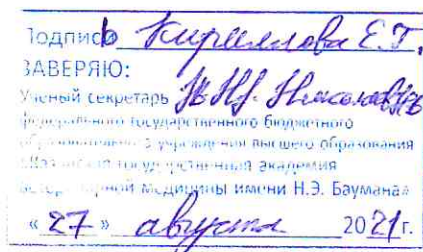 Подпись Кириллова Е.Г.
ЗАВЕРЯЮ:
Ученый секретарь
федерального государственного бюджетного
образовательного учреждения высшего образования
«Казанская государственная академия
ветеринарной медицины имени Н.Э. Баумана»
« 27 » августа 2021 г.